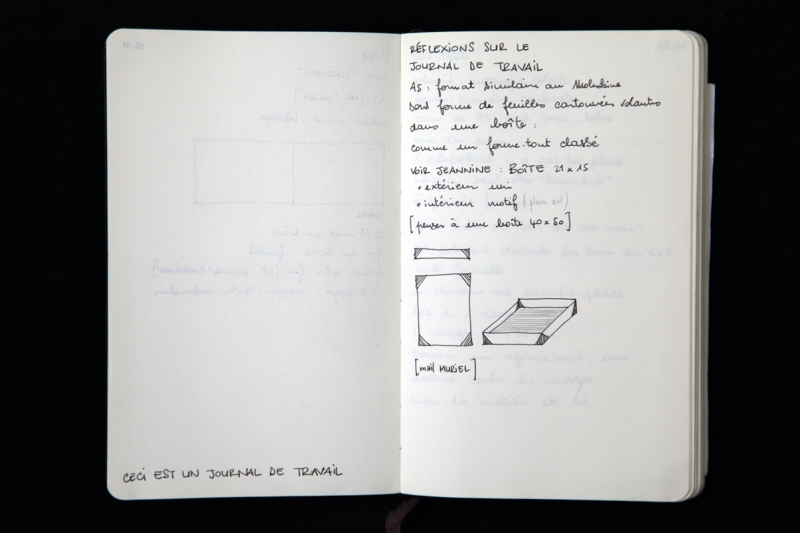 CECI EST UN JOURNAL DE TRAVAIL
RÉFLEXIONS SUR LE
JOURNAL DE TRAVAIL
A5 : format similaire au Moleskine
sous forme de feuilles cartonnées volantes
dans une boîte :
comme un forme-tout classé
VOIR JEANNINE : BOÎTE 21 x 15
• extérieur uni
• intérieur motif (plein col)
[penser à une boîte 40 x 50]
[mail MURIEL]